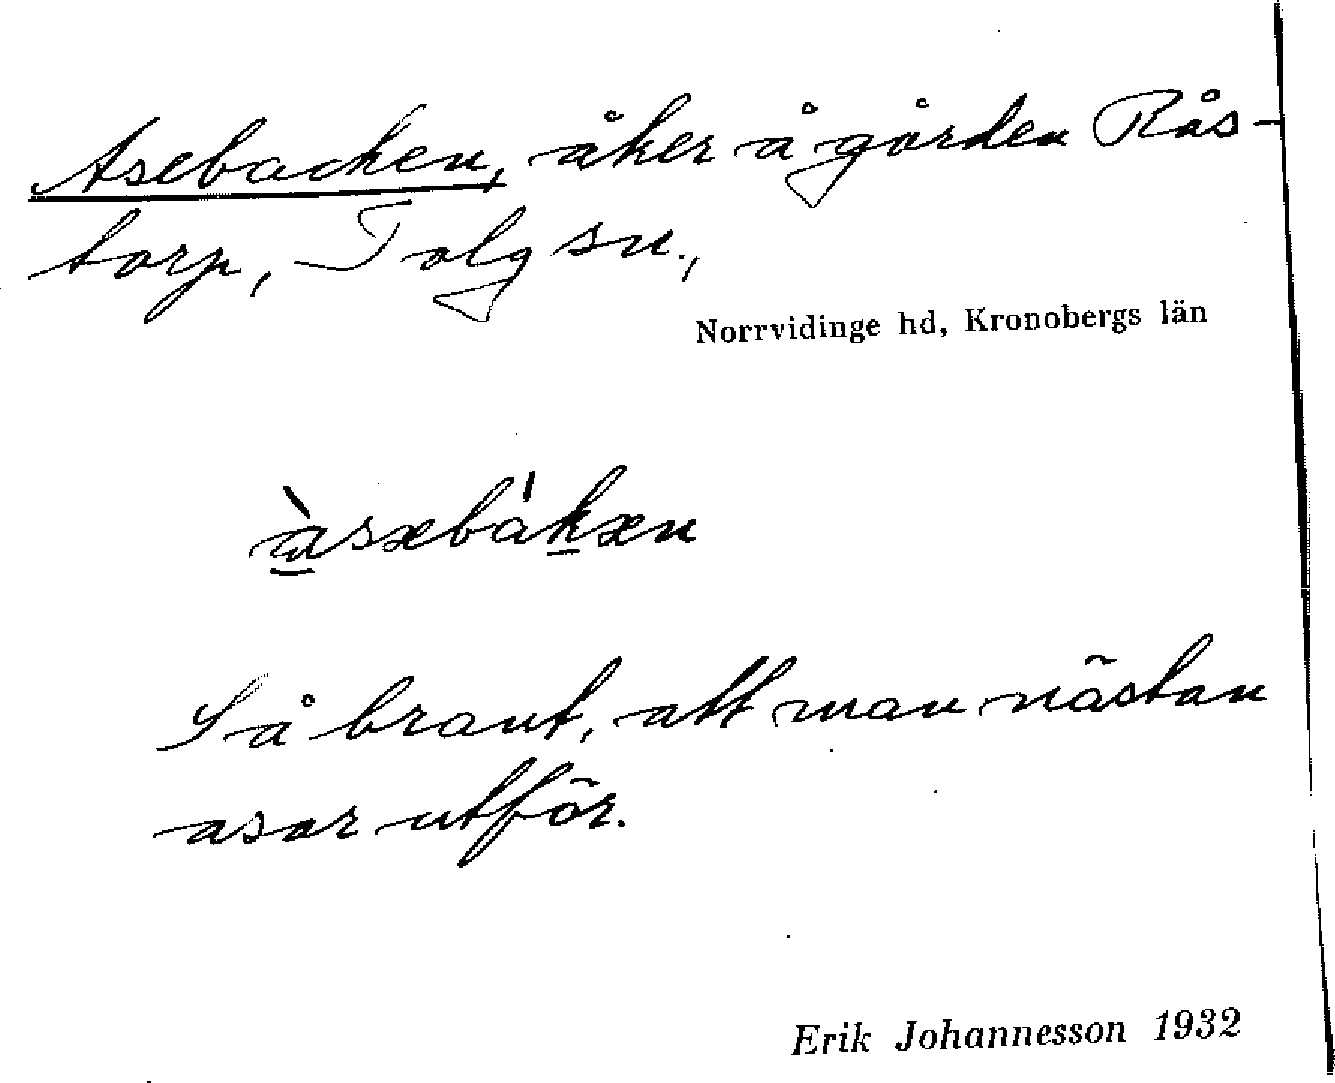 Asebacken, åker å gården Rås-
torp, Tolg sn.,
Norrvidinge hd, Kronobergs län
àsəbákən
Så brant, att man nästan
asar utför.
Erik Johannesson 1932